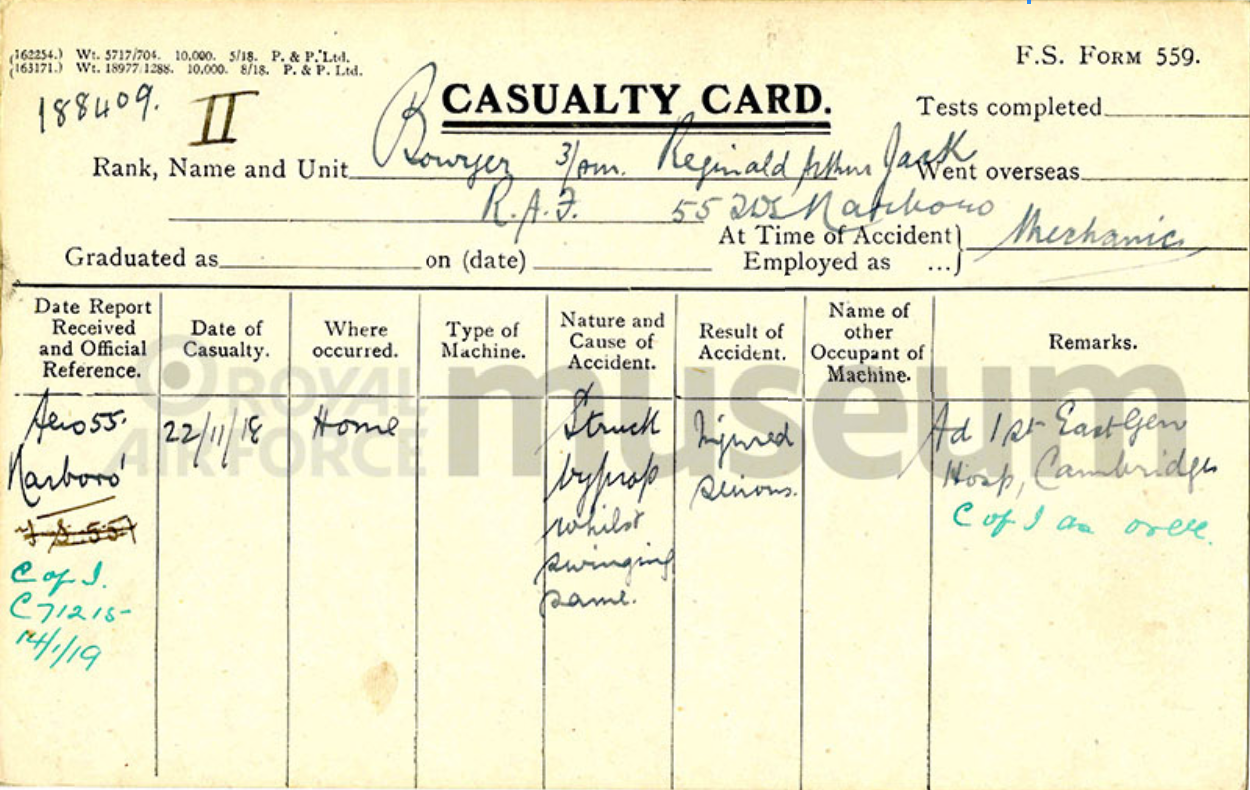 (162254.) Wt. 5717/704. 10,000. 5/18. P. & P. Ltd.
(163171.) Wt. 18977/1288. 10,000. 8/18. P. & P. Ltd.
F.S. FORM 559.
188409.
II
CASUALTY CARD.
Tests completed
Rank, Name and Unit Bowyer 3/am. Reginald Arthur Jack
Went overseas
R.A.F. 55 Narboro
At Time of Accident Employed as ...} Mechanic
Graduated as on (date)
Date Report Received and Official Reference.
Date of Casualty.
Where occurred.
Type of Machine.
Nature and Cause of Accident.
Result of Accident.
Name of other Occupant of Machine.
Remarks.
Aero 55.
Narboro'
C of I.
C71215
14/1/19
22/11/18
Home
Struck
by prop
whilst
swinging
same.
Injured
serious.
Ad 1st East Gen
Hosp, Cambridge
C of I as
ROYAL
AIR FORCE
museum